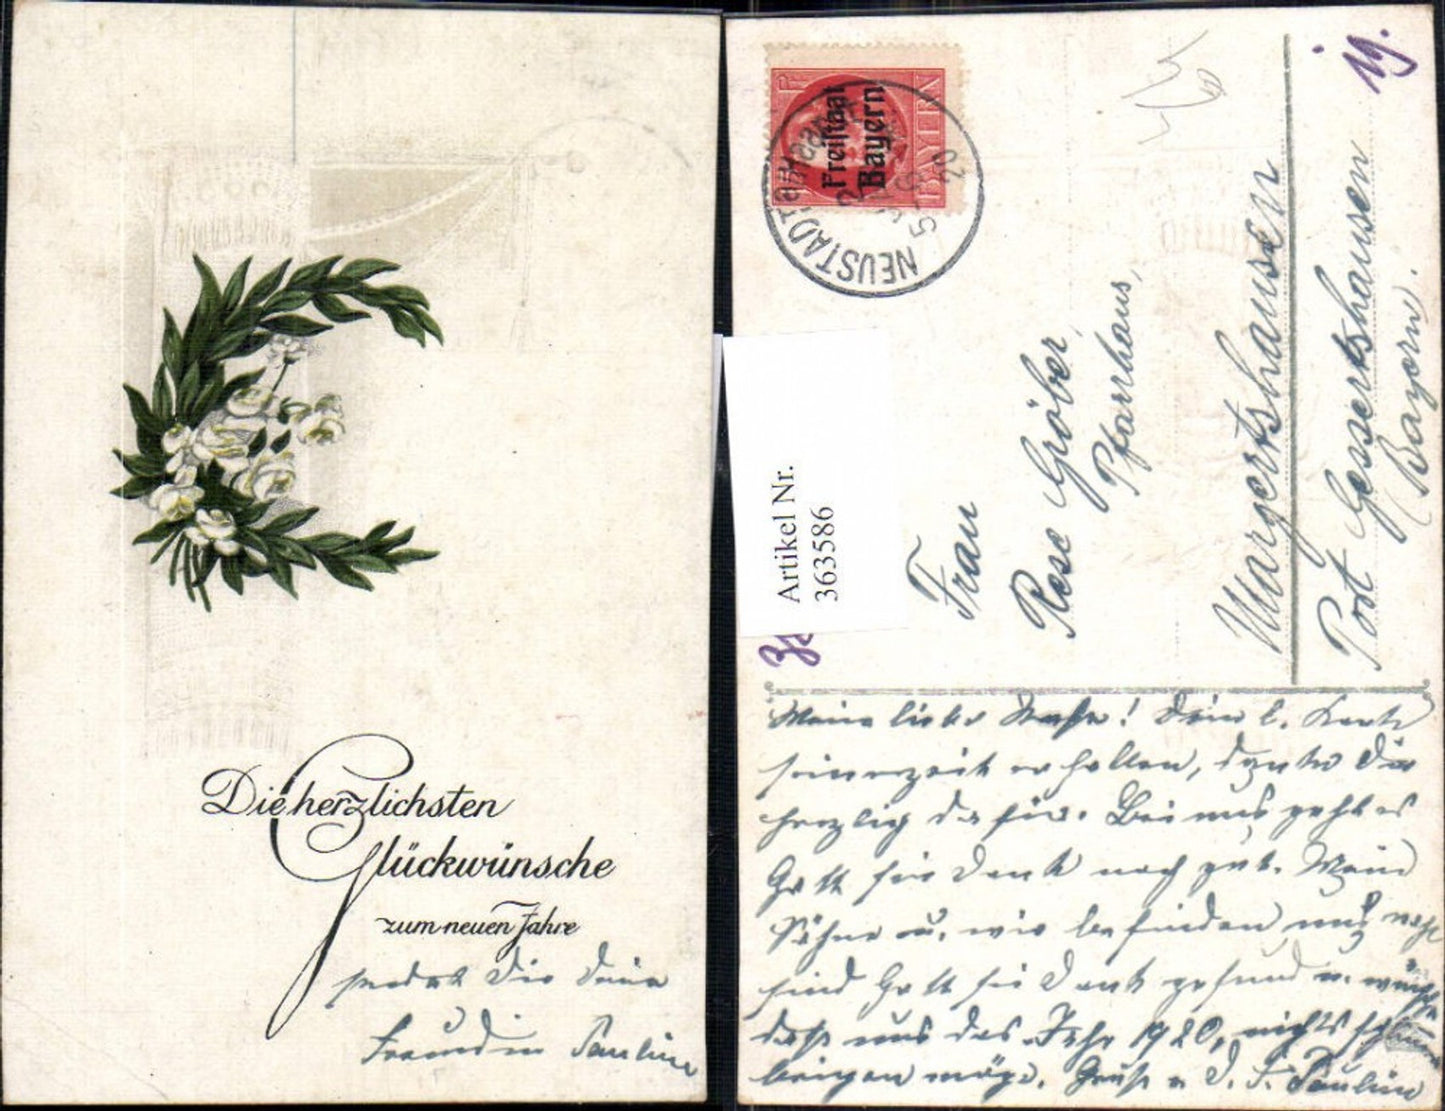 Die herzlichsten
Glückwünsche
zum neuen Jahre
sendet Dir Deine
Freundin Pauline
Freistaat
Bayern
BAYERN
NEUSTADT a/Haardt
20
Artikel Nr.
363586
Frau
Rese Gröber,
Pfarrhaus,
Margertshausen
Post Gessertshausen
(Bayern).
Meine liebe Rese! Deine l. Karte
seinerzeit erhalten, danke Dir
herzlich dafür. Bei uns geht es
Gott sei Dank noch gut. Meine
Söhne u. wir befinden uns
sind Gott sei Dank gesund u.
daß uns das Jahr 1920, nichts
bringen möge. Gruß v. D. F. Pauline